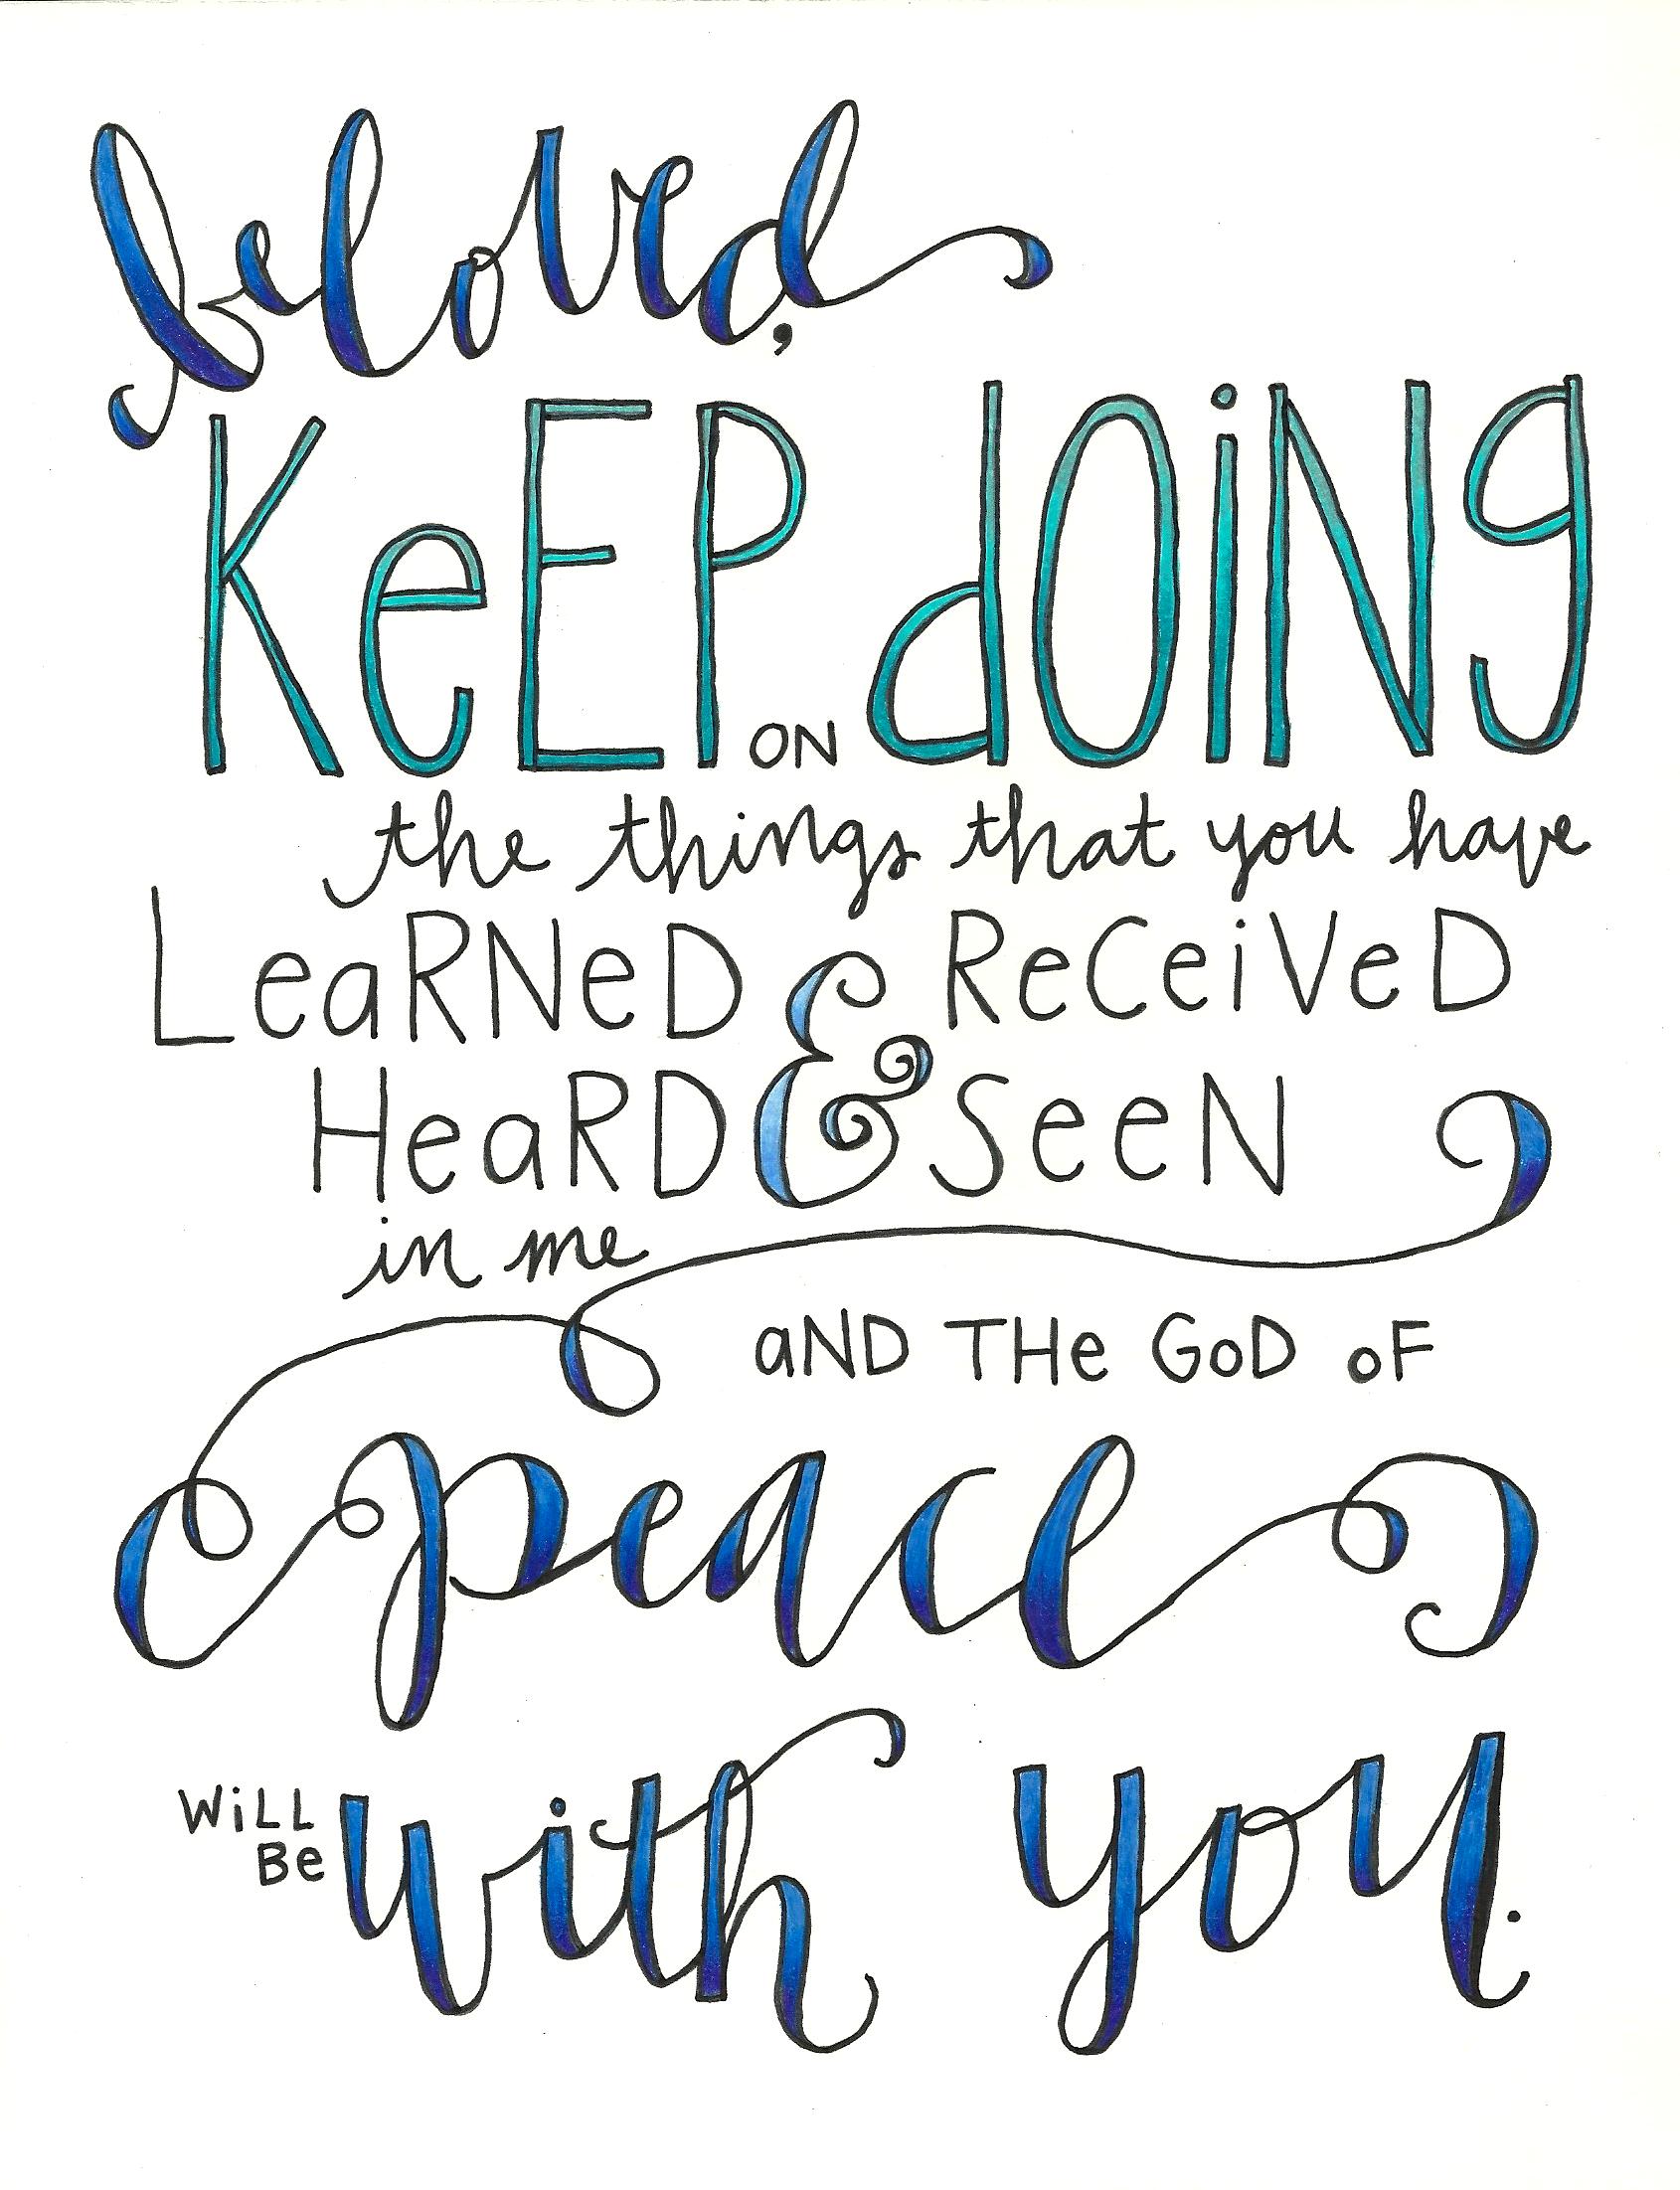 beloved,
KeEP ON dOiNg
the things that you have
LeaRNeD & ReCeiVeD
HeaRD & SeeN
in me
aND THe GoD oF
peace
WiLL
Be with you.